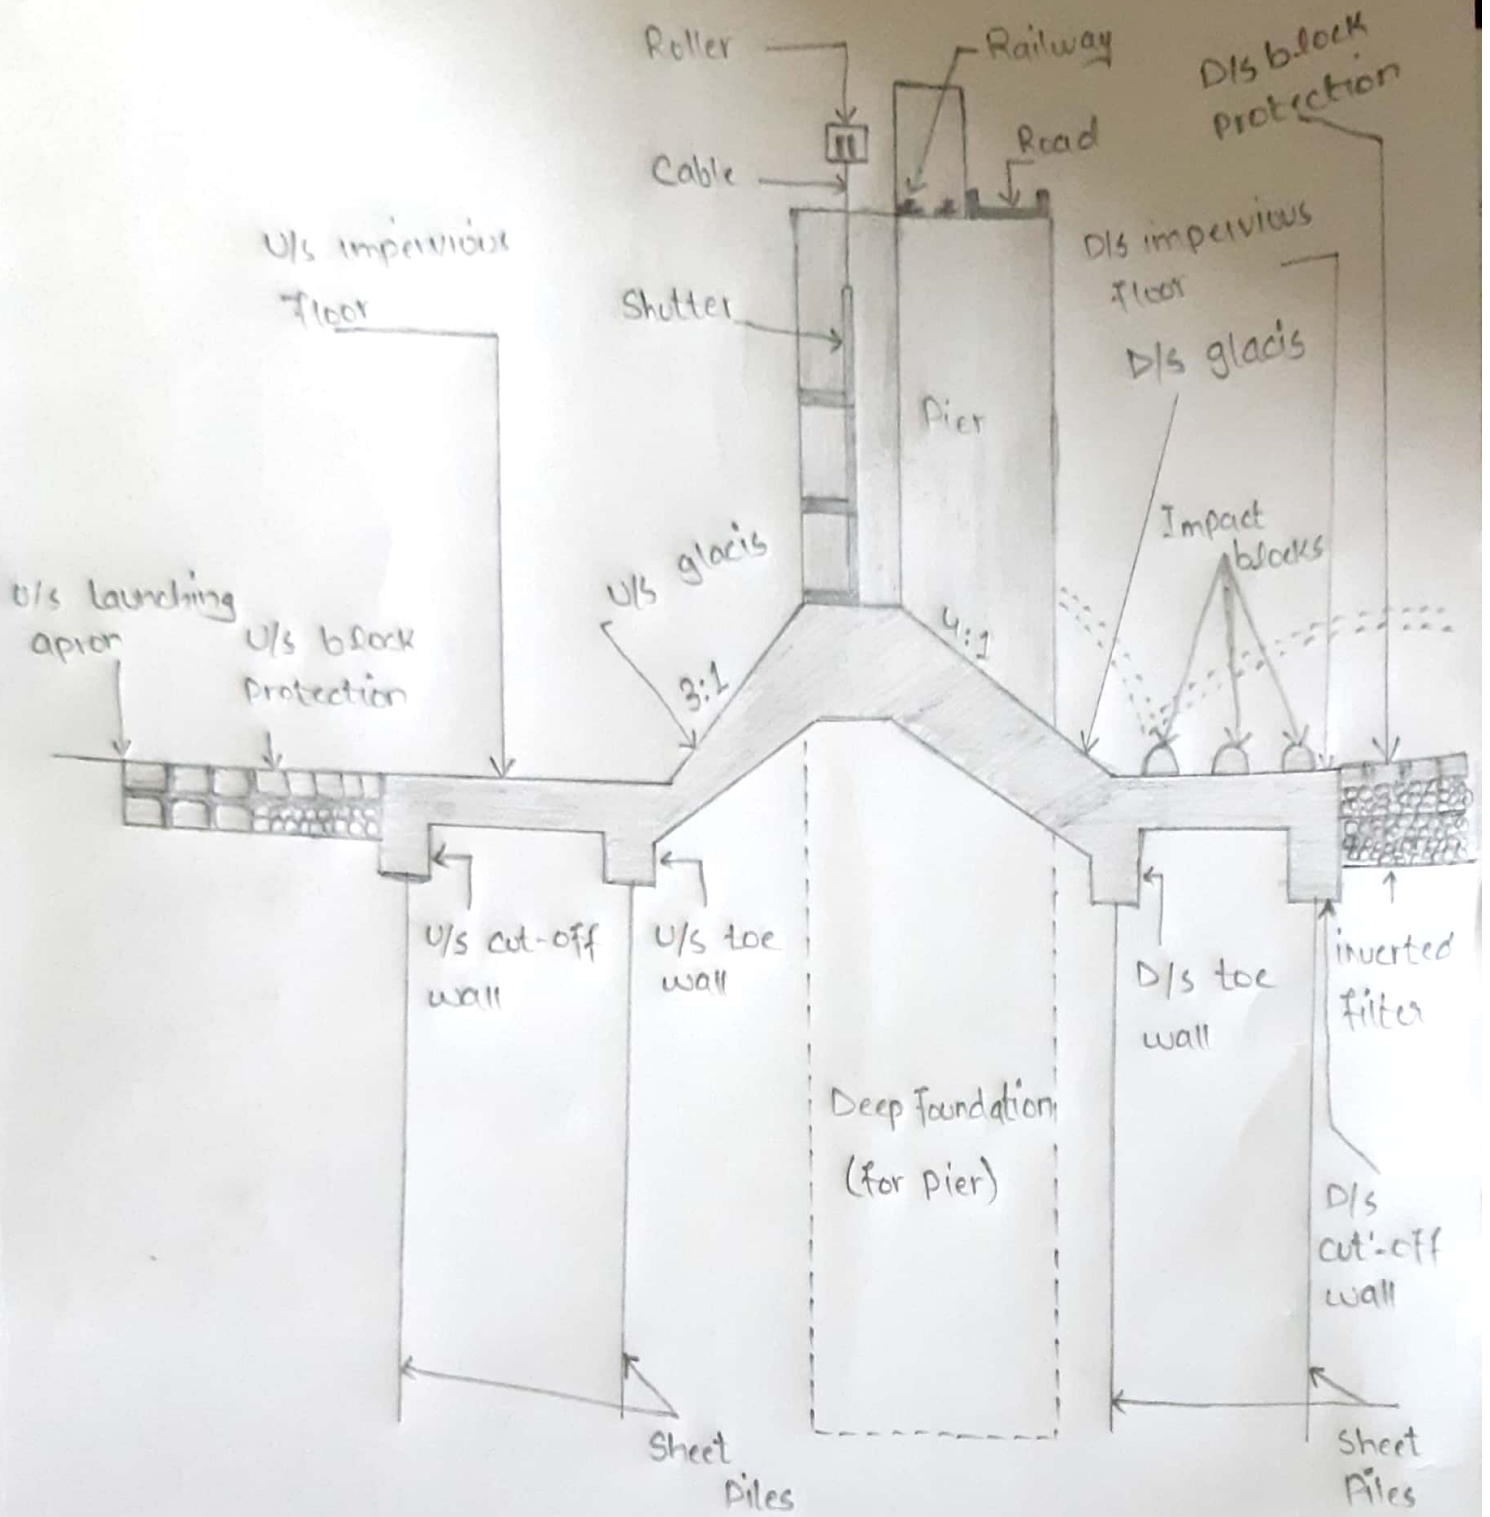 Roller
Railway
D/s block
protection
Road
Cable
U/s impervious
floor
D/s impervious
floor
Shutter
D/s glacis
Pier
Impact
blocks
U/s glacis
U/s launching
apron
U/s block
protection
3:1
4:1
U/s cut-off
wall
U/s toe
wall
D/s toe
wall
inverted
filter
Deep Foundation
(for pier)
D/s
cut-off
wall
Sheet
Piles
Sheet
Piles